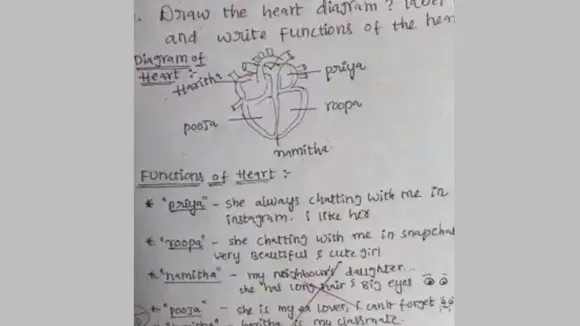 . Draw the heart diagram? label
and write functions of the hear
Diagram of
Heart :-
Haritha
priya
pooja
roopa
namitha
Functions of Heart :-
* "priya" - she always chatting with me in
instagram. i like her
* "roopa" - she chatting with me in snapchat
very beautiful & cute girl
* "namitha" - my neighbour's daughter..
she has long hair & Big eyes
* "pooja" - she is my ex lover, i can't forget
is my classmate.